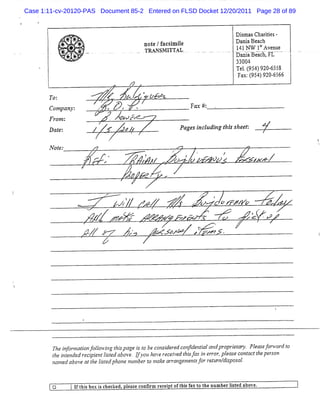 Case 1:11-cv-20120-PAS Document 85-2 Entered on FLSD Docket 12/20/2011 Page 28 of 89
note / facsimile
TRANSMITTAL
Dismas Charities -
Dania Beach
141 NW 1st Avenue
Dania Beach, FL
33004
Tel. (954) 920-6558
Fax: (954) 920-6566
To: Ms
Company: B.O.P. Fax #:
From:
Date: 1/5/2011 Pages including this sheet: 4
Note:
Ref: TRAIAN Bujduveanu's Personal
Property.
I will call Ms Bujduveanu today
And make arrangements to pick up
All of his personal items.
The information following this page is to be considered confidential and proprietary. Please forward to
the intended recipient listed above. If you have received this fax in error, please contact the person
named above at the listed phone number to make arrangements for return/disposal.
G If this box is checked, please confirm receipt of this fax to the number listed above.